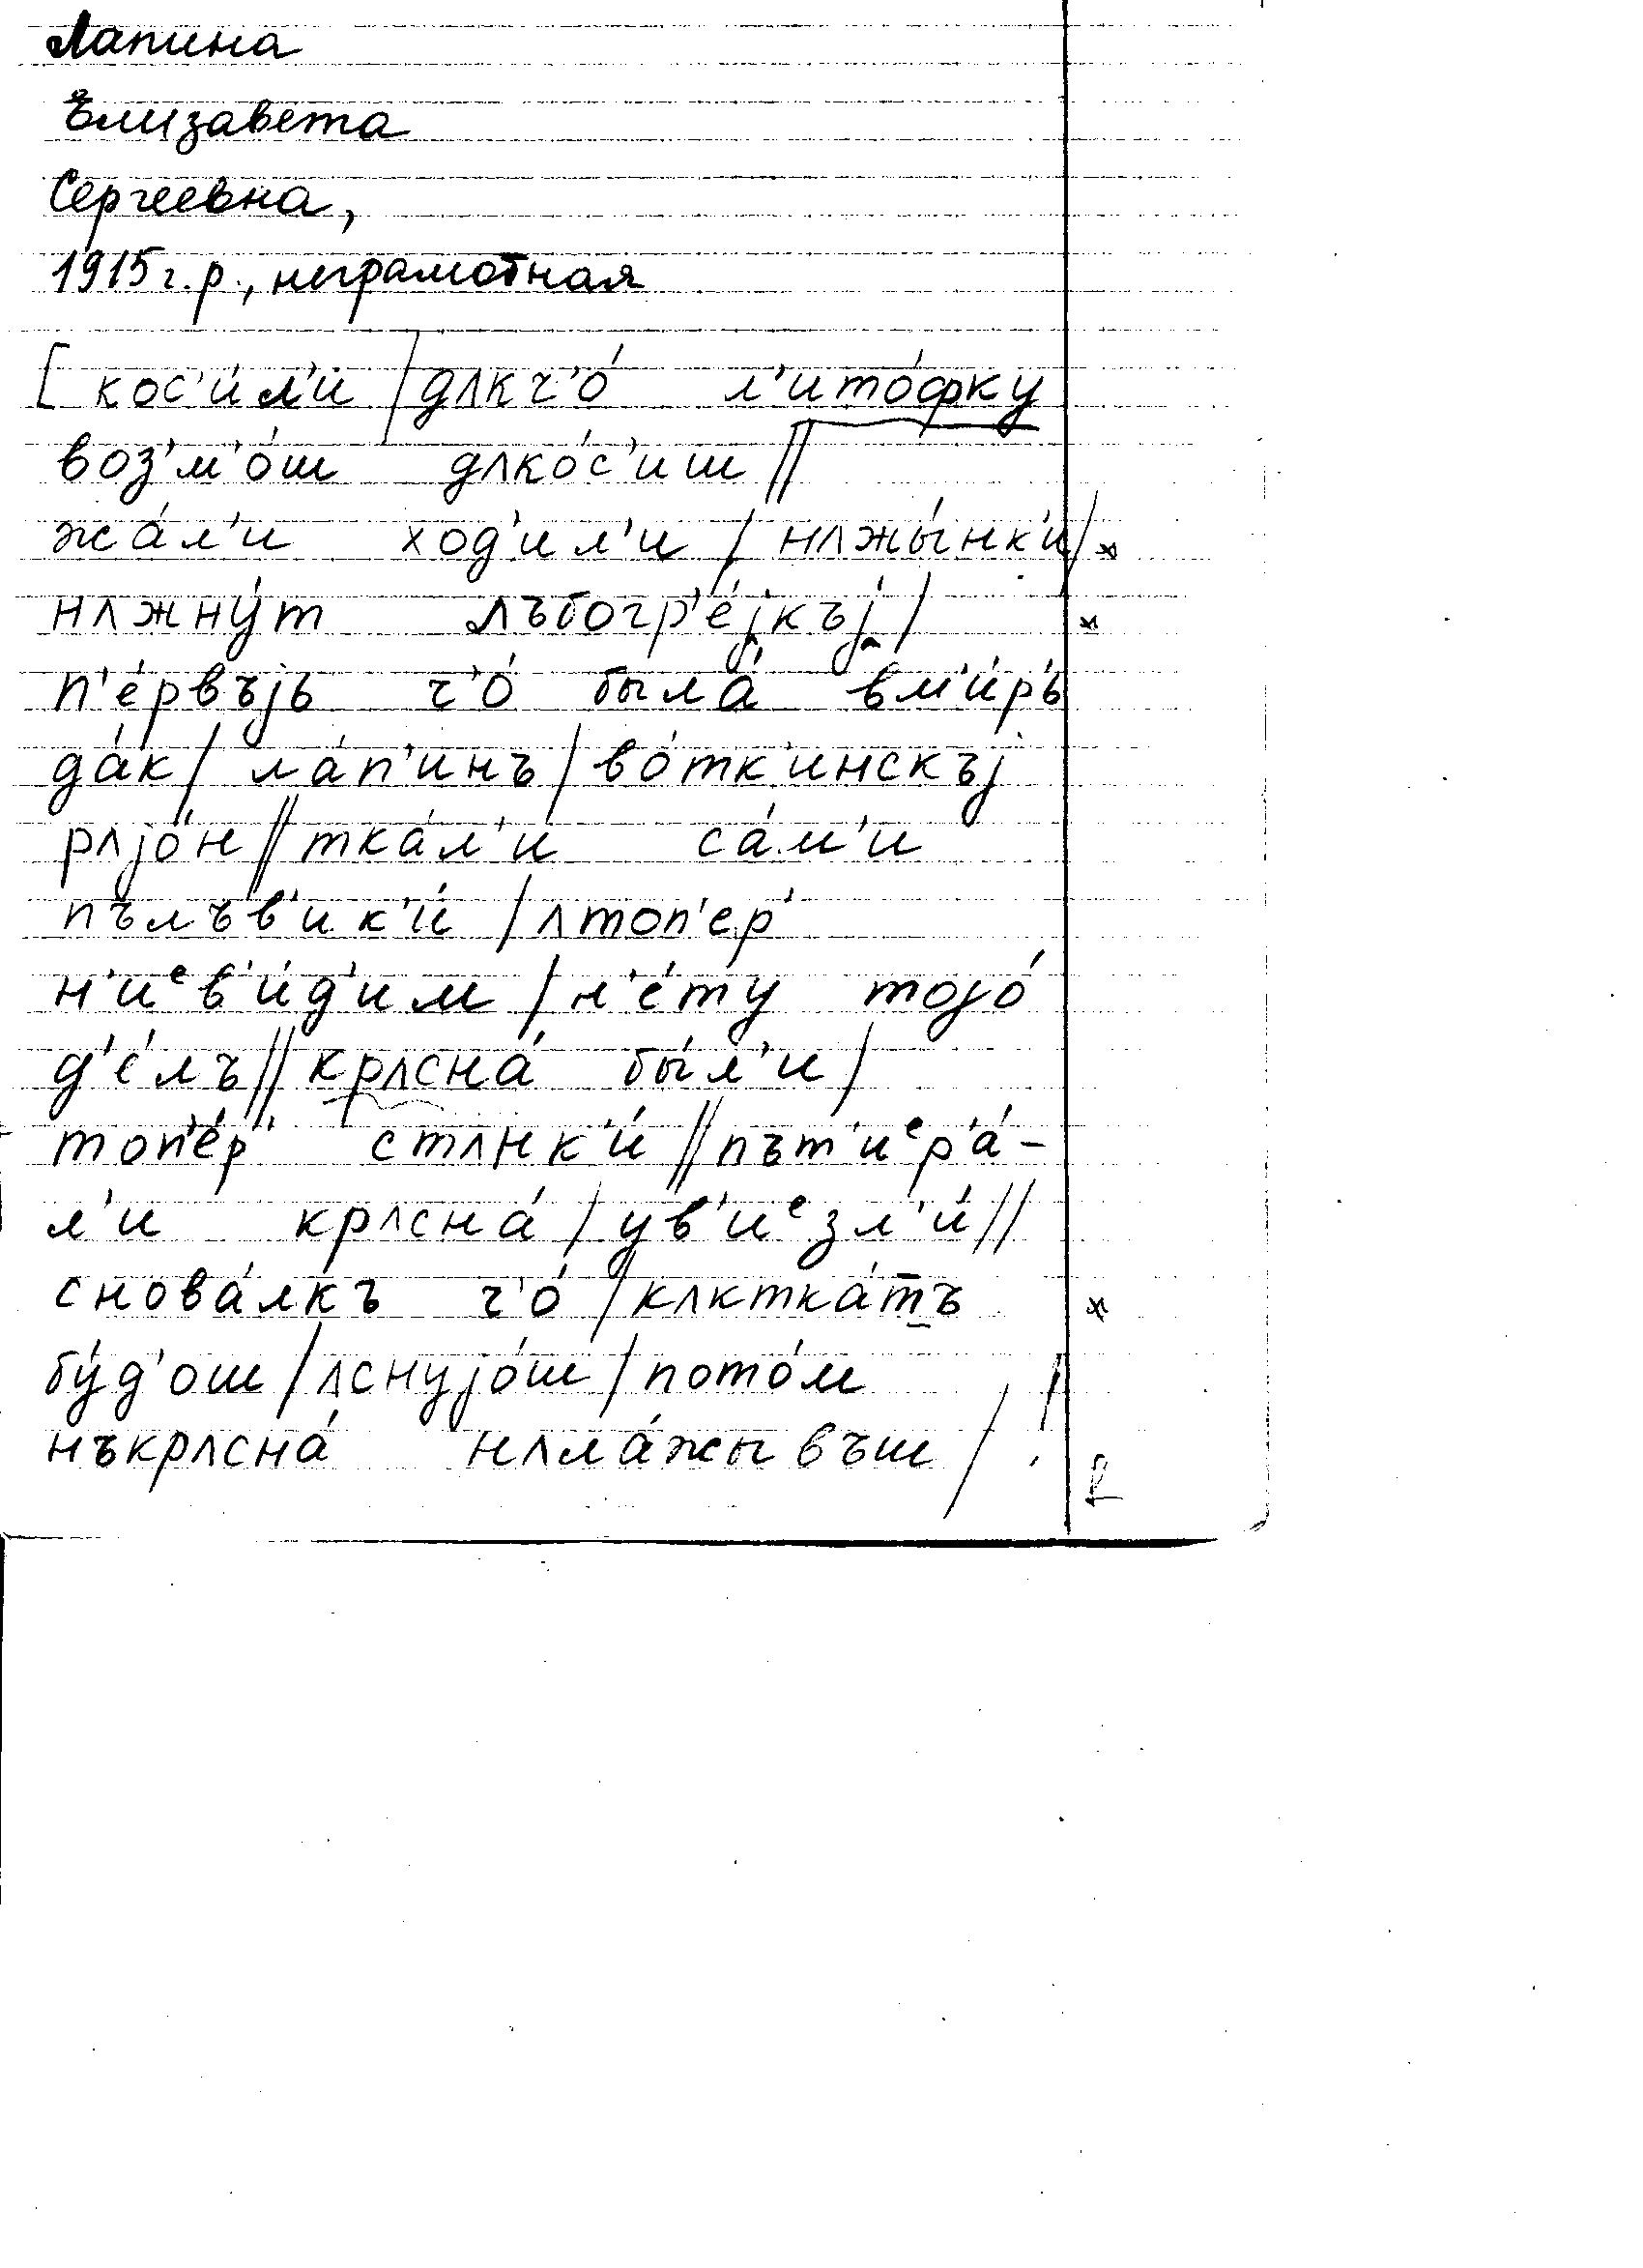 Лапина
Елизавета
Сергеевна,
1915 г.р., неграмотная
[ кос'и́л'и / дʌкч'о́ л'ито́фку
воз'м'о́ш дʌко́с'иш //
жа́л'и ход'ил'и / нʌжы́нк'и / *
нʌжну́т лъбогр'е́jкъj / *
п'е́рвъjь ч'о́ была́ вм'и́р'ь
да́к / ла́п'инъ / во́тк'инскъj
рʌjо́н // тка́л'и са́м'и
пълъв'ик'и́ / ʌтоп'ер'
н'иᵉв'и́д'им / н'е́ту тоjо́
д'е́лъ // крʌсна́ бы́л'и /
топ'е́р' стʌнк'и́ // път'иᵉр'а́-
л'и крʌсна́ / ув'иᵉзл'и́ //
снова́лкъ ч'о́ / кʌктка́тъ *
бу́д'ош / ʌснуjо́ш / пото́м
нъкрʌсна́ нʌла́жывъш /